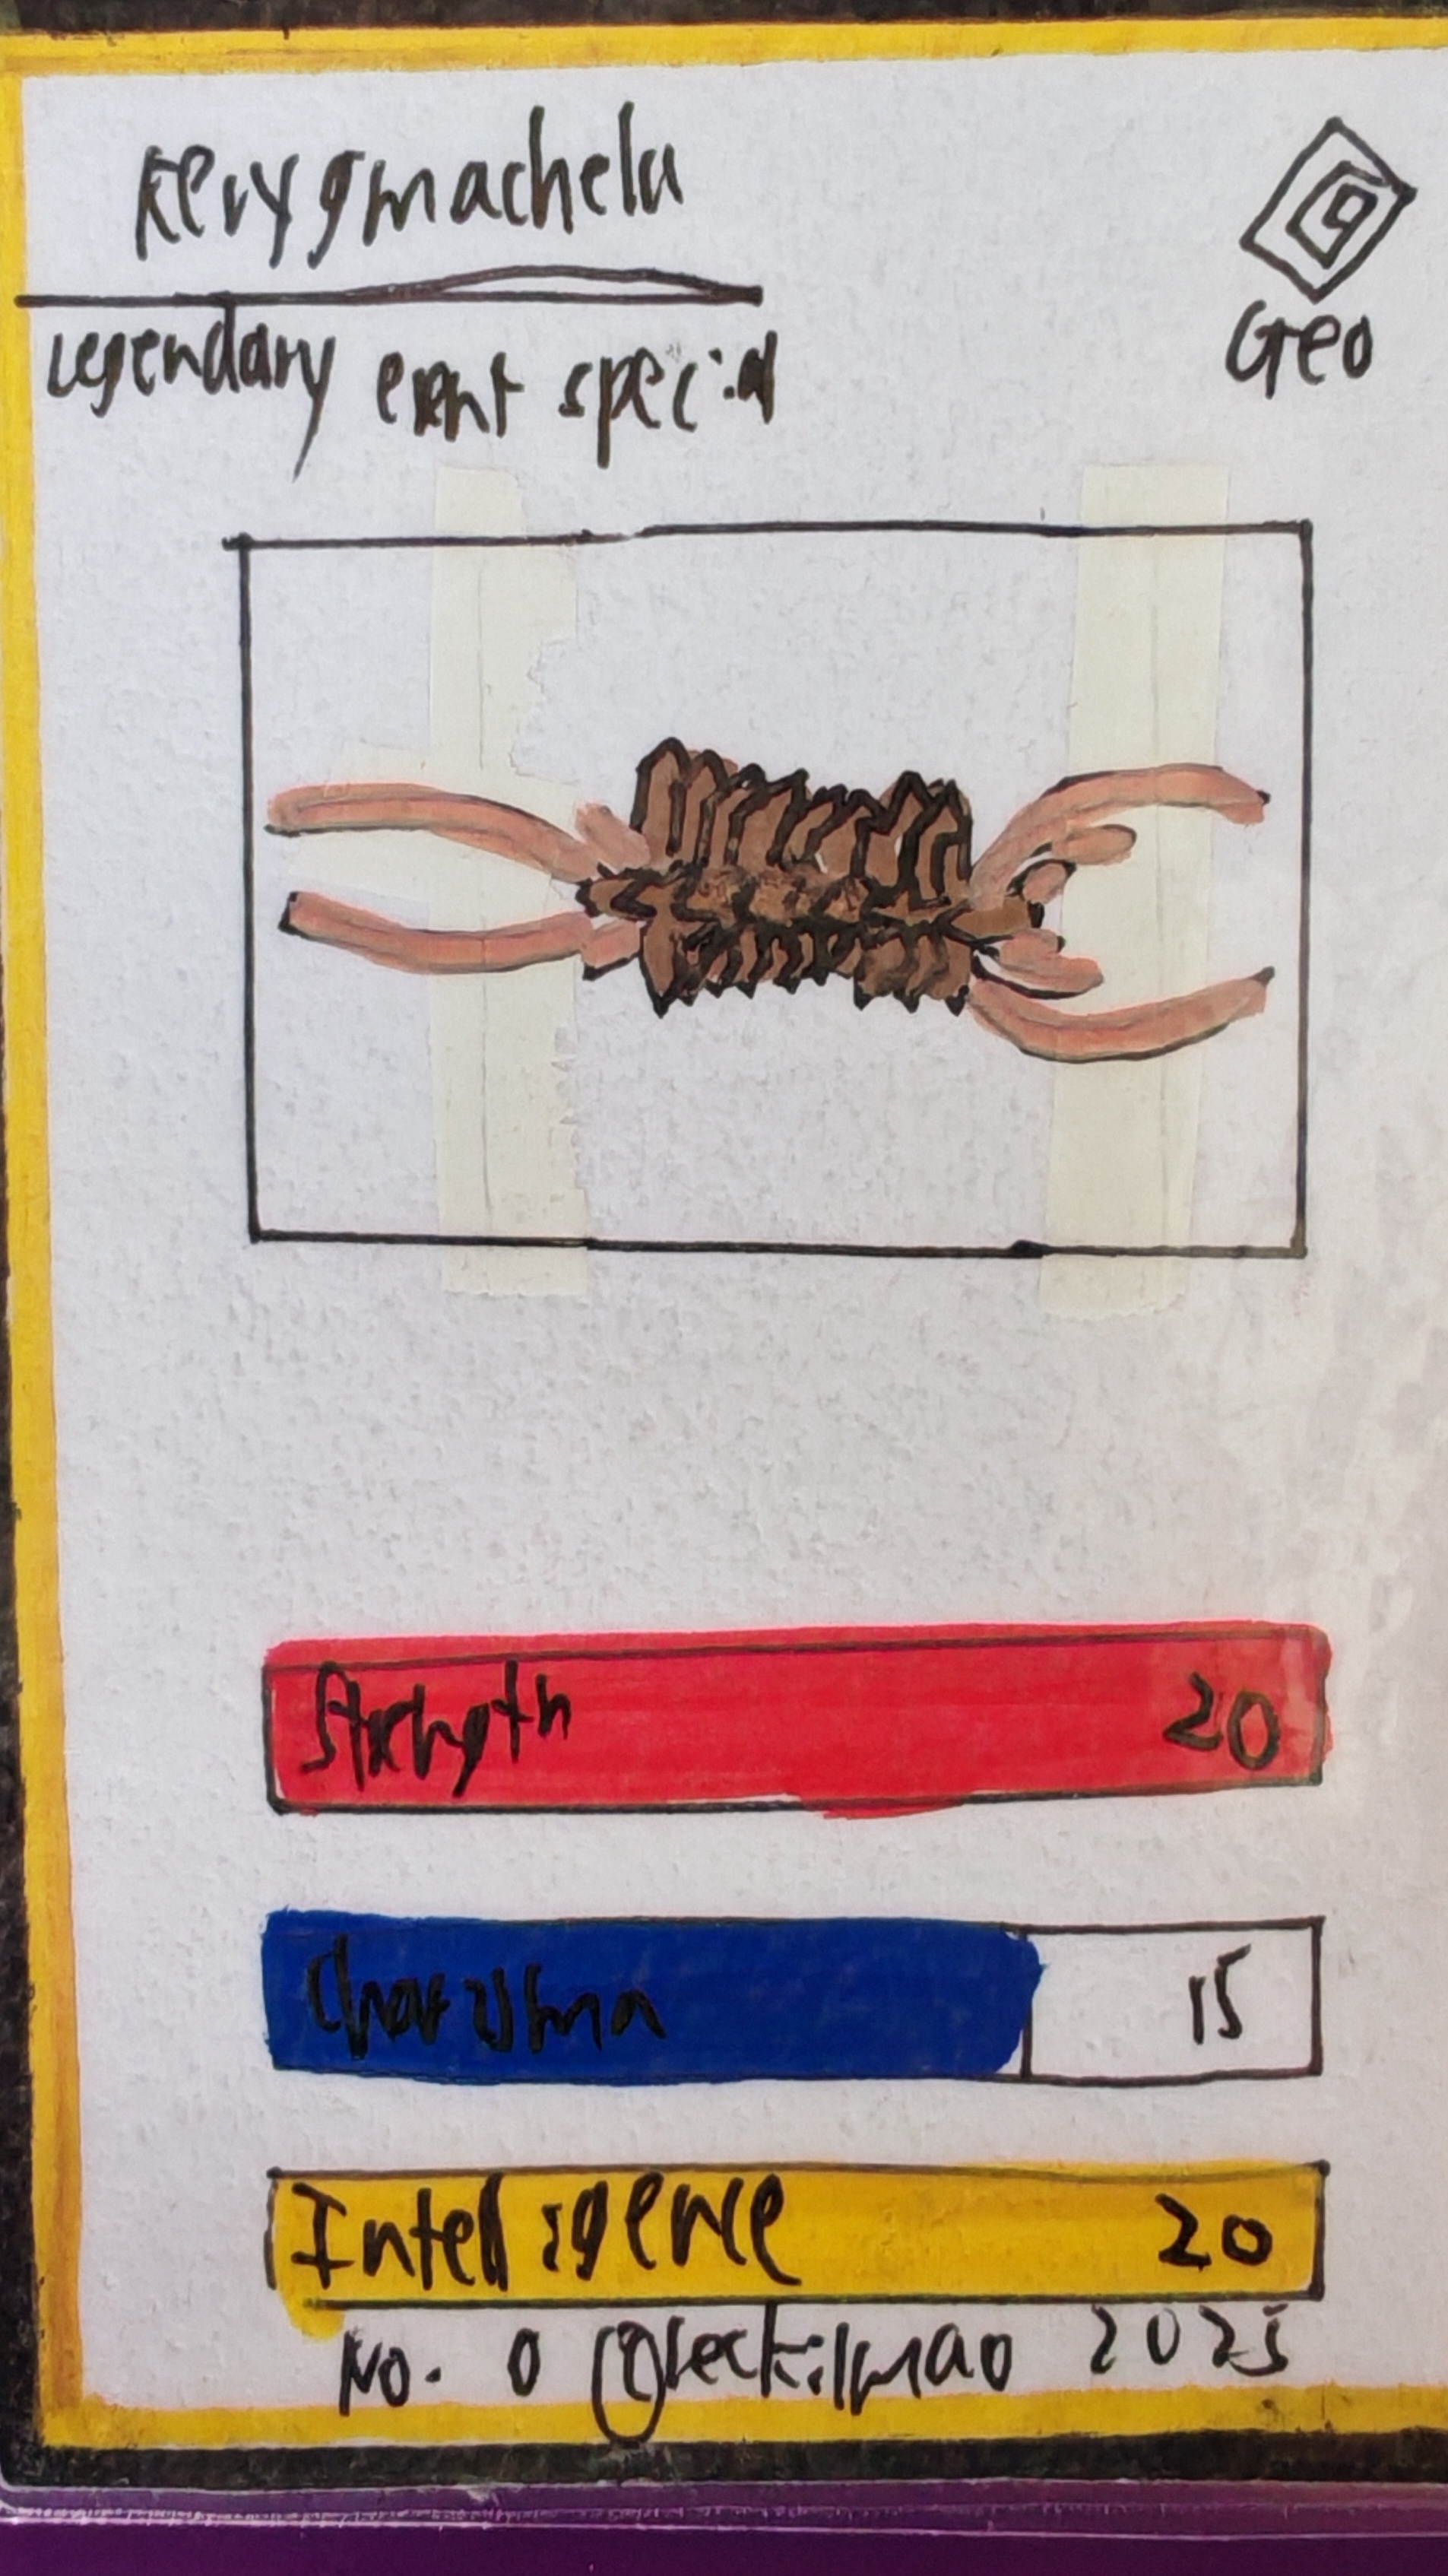 Kerygmachela
Geo
Legendary event special
Strength 20
Charisma 15
Intelligence 20
No. 0 2025